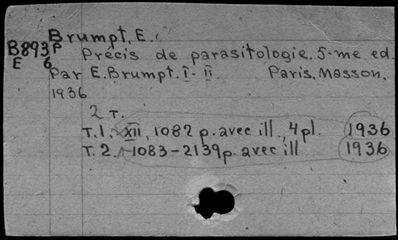 Brumpt, E.
B893p Précis de parasitologie. 5-me ed.
E 6 Par E. Brumpt. I-II Paris, Masson,
1936
2 т.
Т. 1. XII, 1082 p. avec ill., 4 pl. 1936
Т. 2. 1083-2139 p. avec ill 1936